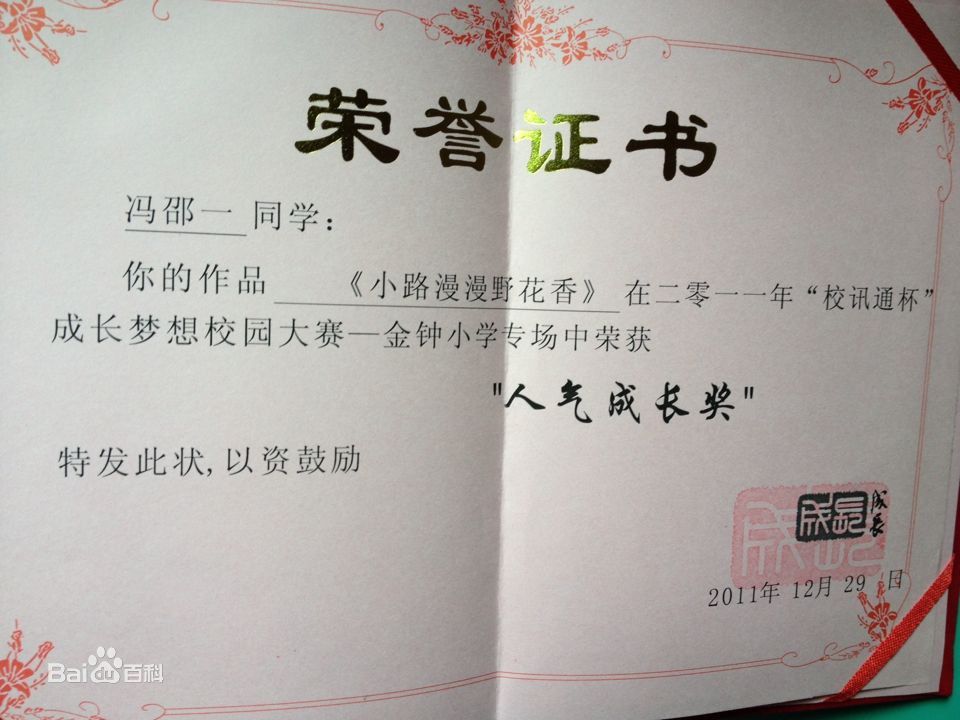 荣誉证书
冯邵一 同学：
你的作品 《小路漫漫野花香》 在二零一一年“校讯通杯”
成长梦想校园大赛—金钟小学专场中荣获
"人气成长奖"
特发此状,以资鼓励
成長
成长
2011年 12月 29 日
Bai百科